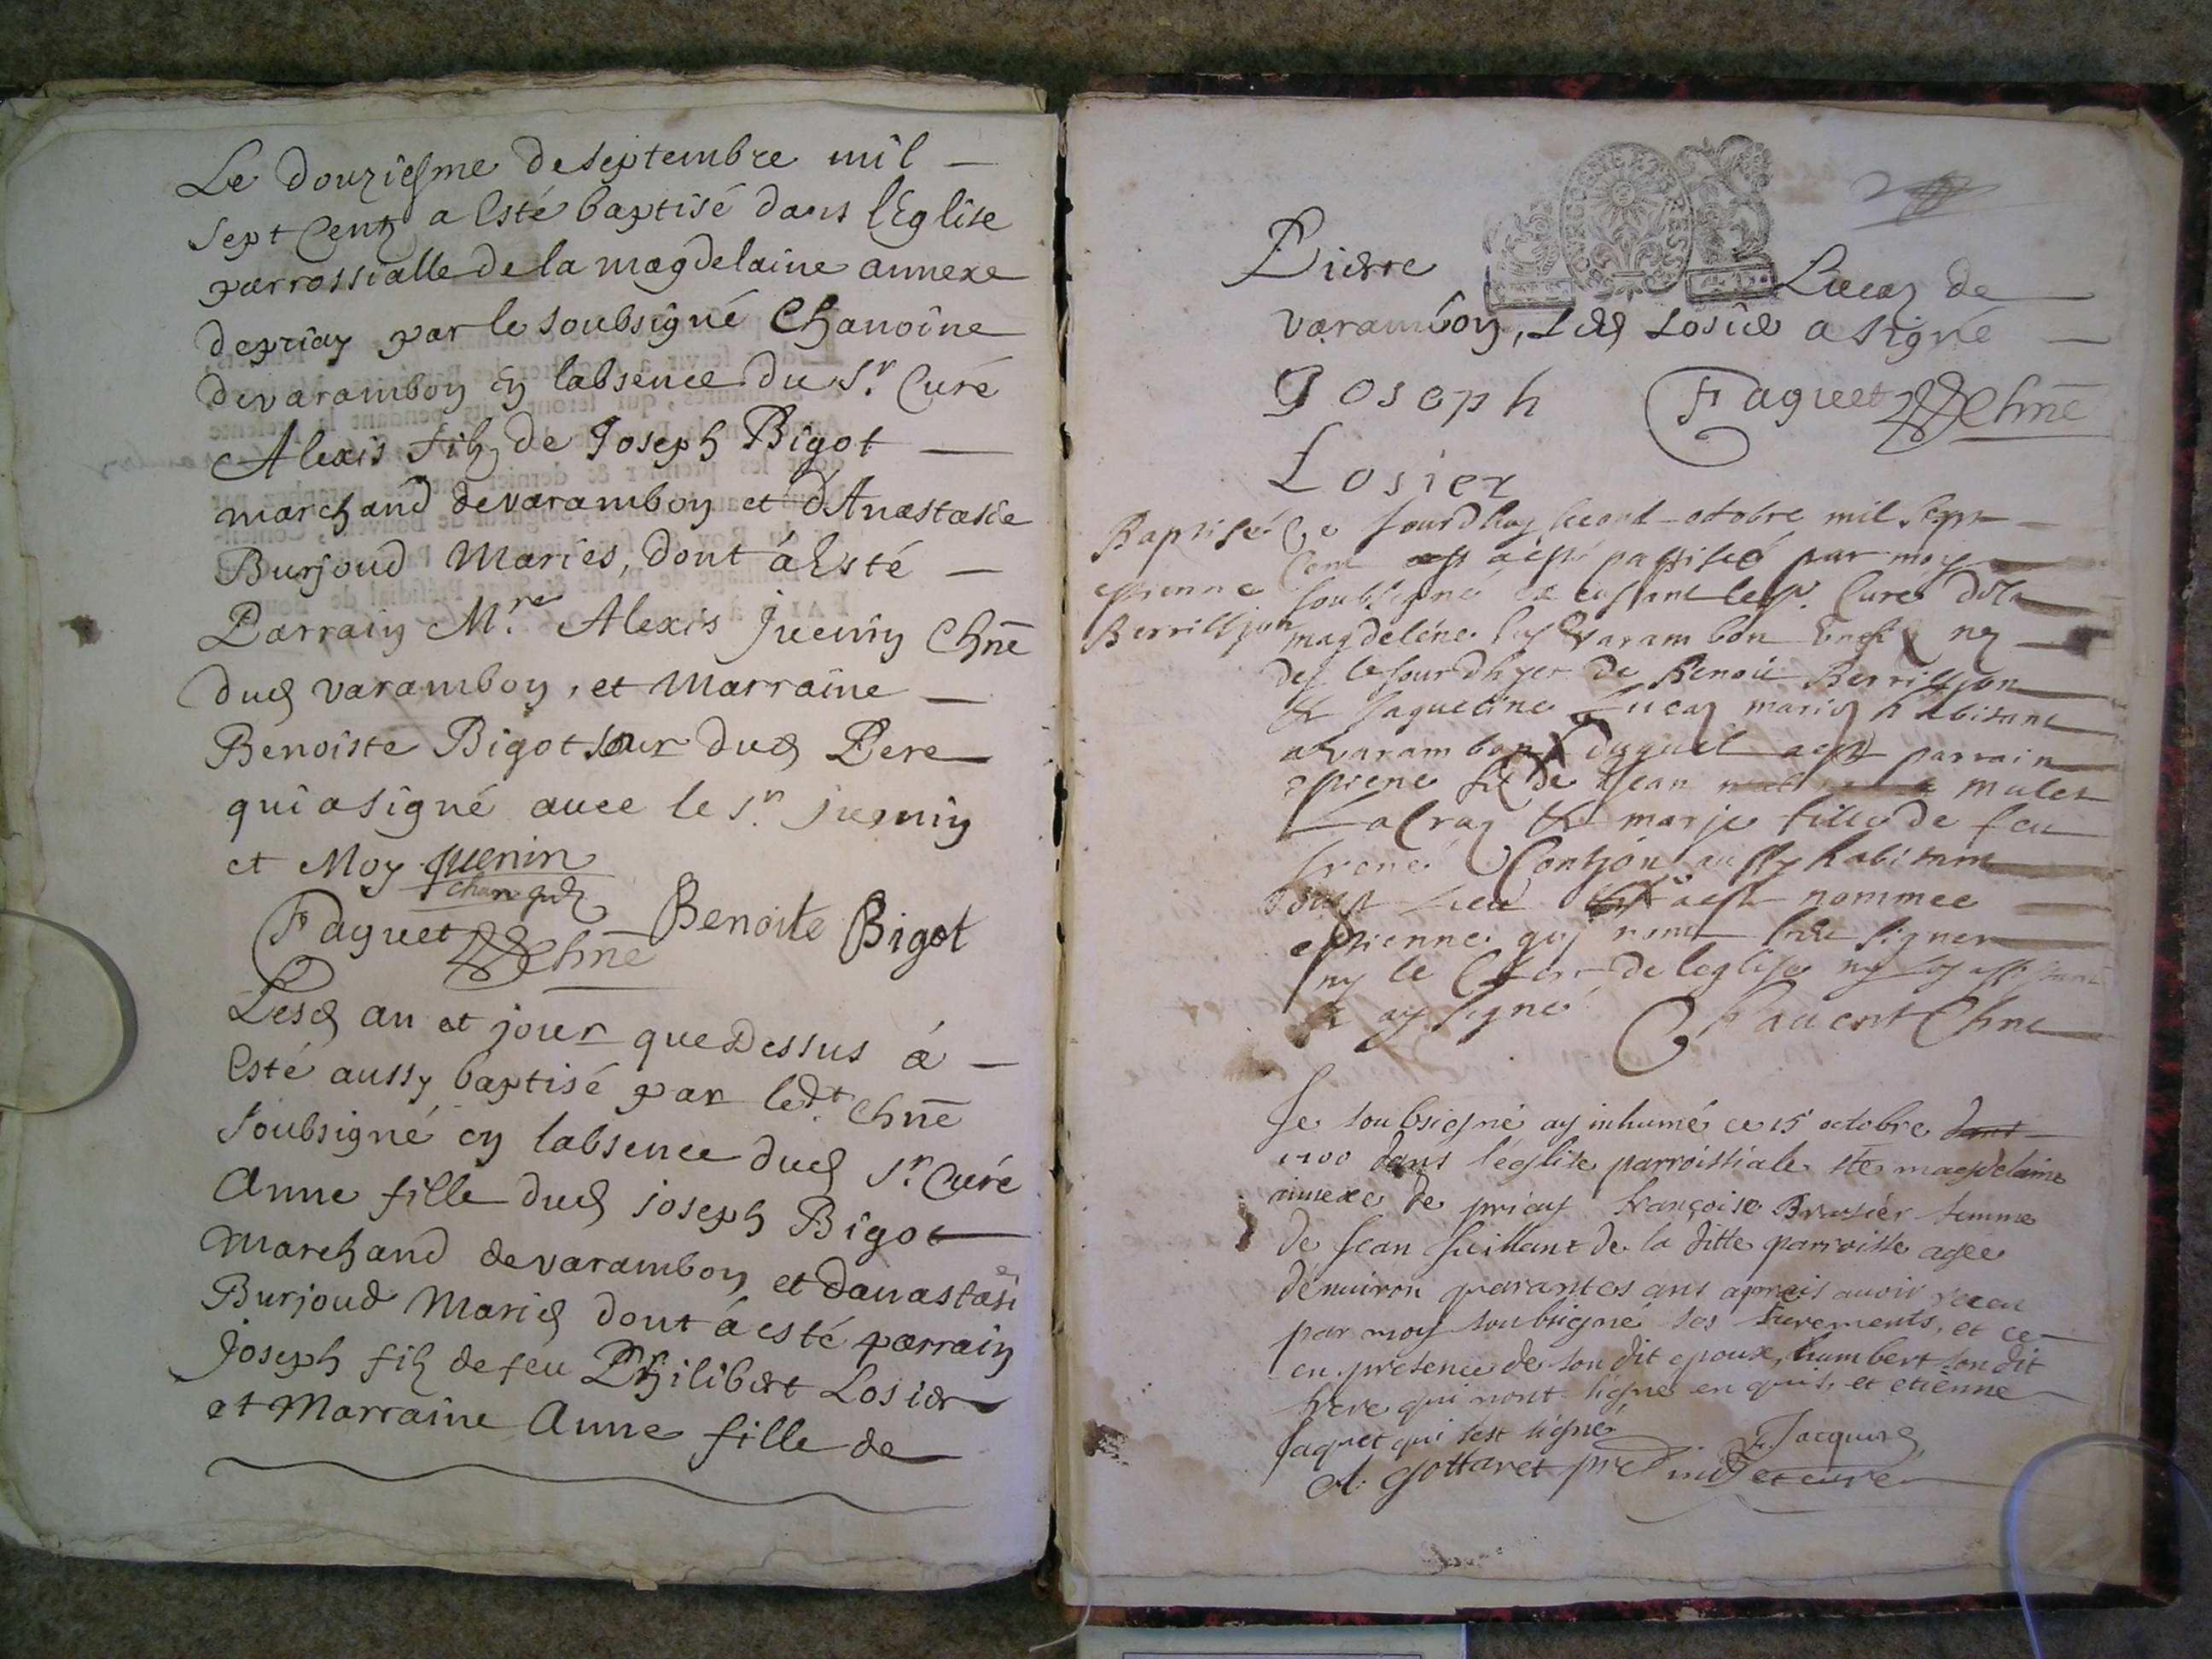 Le douziesme de septembre mil
sept Centz a Esté baptisé dans lEglise
parrossialle de la magdelaine annexe
depriay par le soubsigné Chanoine
devarambon En labsence du Sr. Curé
Alexis filz de Joseph Bigot
marchand devarambon et dAnastasie
Burjoud Maries, dont á Esté
Parrain Mre. Alexis Juenin Chne
dud varambon, et Marraine
Benoiste Bigot sour dud Pere
qui a signé avec le Sr. juenin
et Moy Juenin
chan
Faguet Chne Benoite Bigot
Lesd an et jour que Dessus á
Esté aussy baptisé par ledt. Chne
soubsigné en labsence dud Sr. Curé
Anne fille dud joseph Bigot
marchand devarambon et danastasie
Burjoud Maries dont á esté parrain
Joseph filz defeu Philibert Losier
et Marraine Anne fille de
2
Pierre Lucaz de
varambon, Led Losier a signé
Joseph Faguet Chne
Losier
Baptisé
etienne
Berrilljon
Ce jourdhuy second octobre mil sept
Cent a esté par moy
soubsigné le Sr. Curé de la
magdeléne varambon
de Benoit Berrilljon
& Jaqueline Lucaz mariez habitant
a Varambon duquel a esté parrain
etiene de Jean mulet
& marje fille de feu
aussy habitant
Lieu a esté nommee
etienne quj nont signer
ny le de leglise
& ay signé Pavent Chne
Je soubsigné ay inhumé ce 15 octobre
1700 dans l'églîse parroissiale ste magdelaine
annexe de priay françoise Brasier femme
de Jean de la ditte parroisse agée
denuiron quarantes ans aprais avoir receu
par moy soubsigné ses sacrements, et ce
en presence de son dit epoux, humbert son dit
frere qui nont signé enquis, et etiénne
faquet qui sest signé
A. Gottaret pre et curé